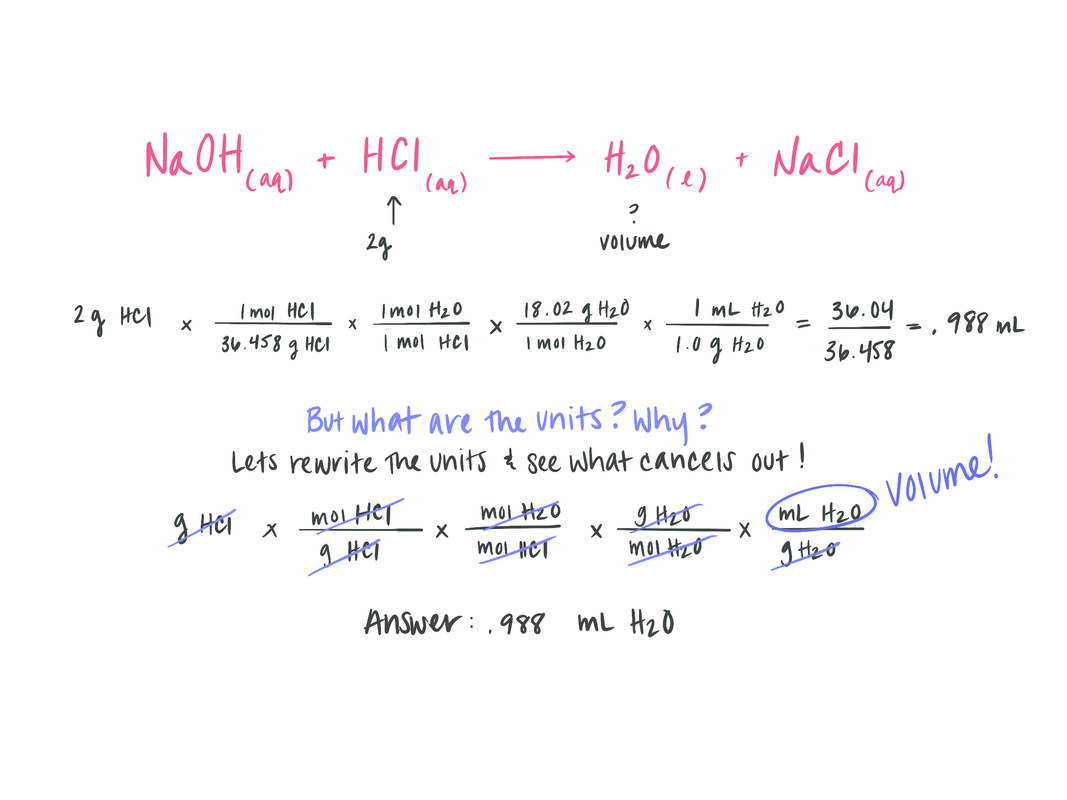 NaOH(aq) + HCl(aq) → H2O(l) + NaCl(aq)
↑ ?
2g volume
2 g HCl × 1 mol HCl / 36.458 g HCl × 1 mol H2O / 1 mol HCl × 18.02 g H2O / 1 mol H2O × 1 mL H2O / 1.0 g H2O = 36.04 / 36.458 = .988 mL
But what are the units? Why?
Lets rewrite the units & see what cancels out!
g HCl × mol HCl / g HCl × mol H2O / mol HCl × g H2O / mol H2O × mL H2O / g H2O volume!
Answer: .988 mL H2O